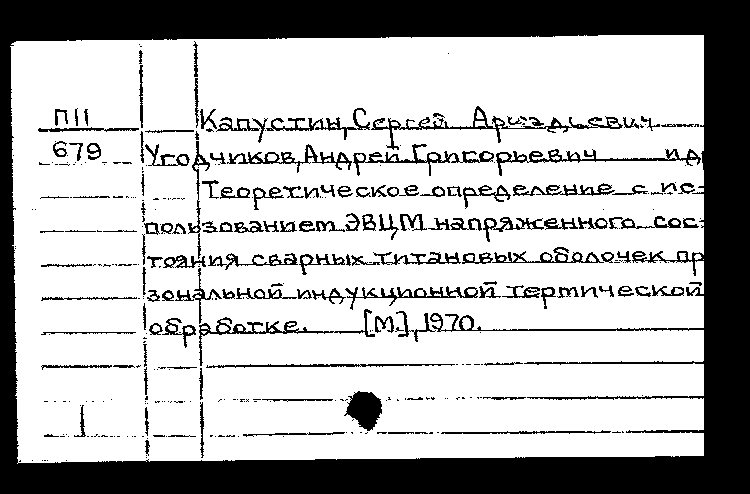 П11 Капустин, Сергей Аркадьевич
679 Угодчиков, Андрей Григорьевич и др
Теоретическое определение с ис-
пользованием ЭВЦМ напряженного сос-
тояния сварных титановых оболочек пр
зональной индукционной термической
обработке. [М.], 1970.